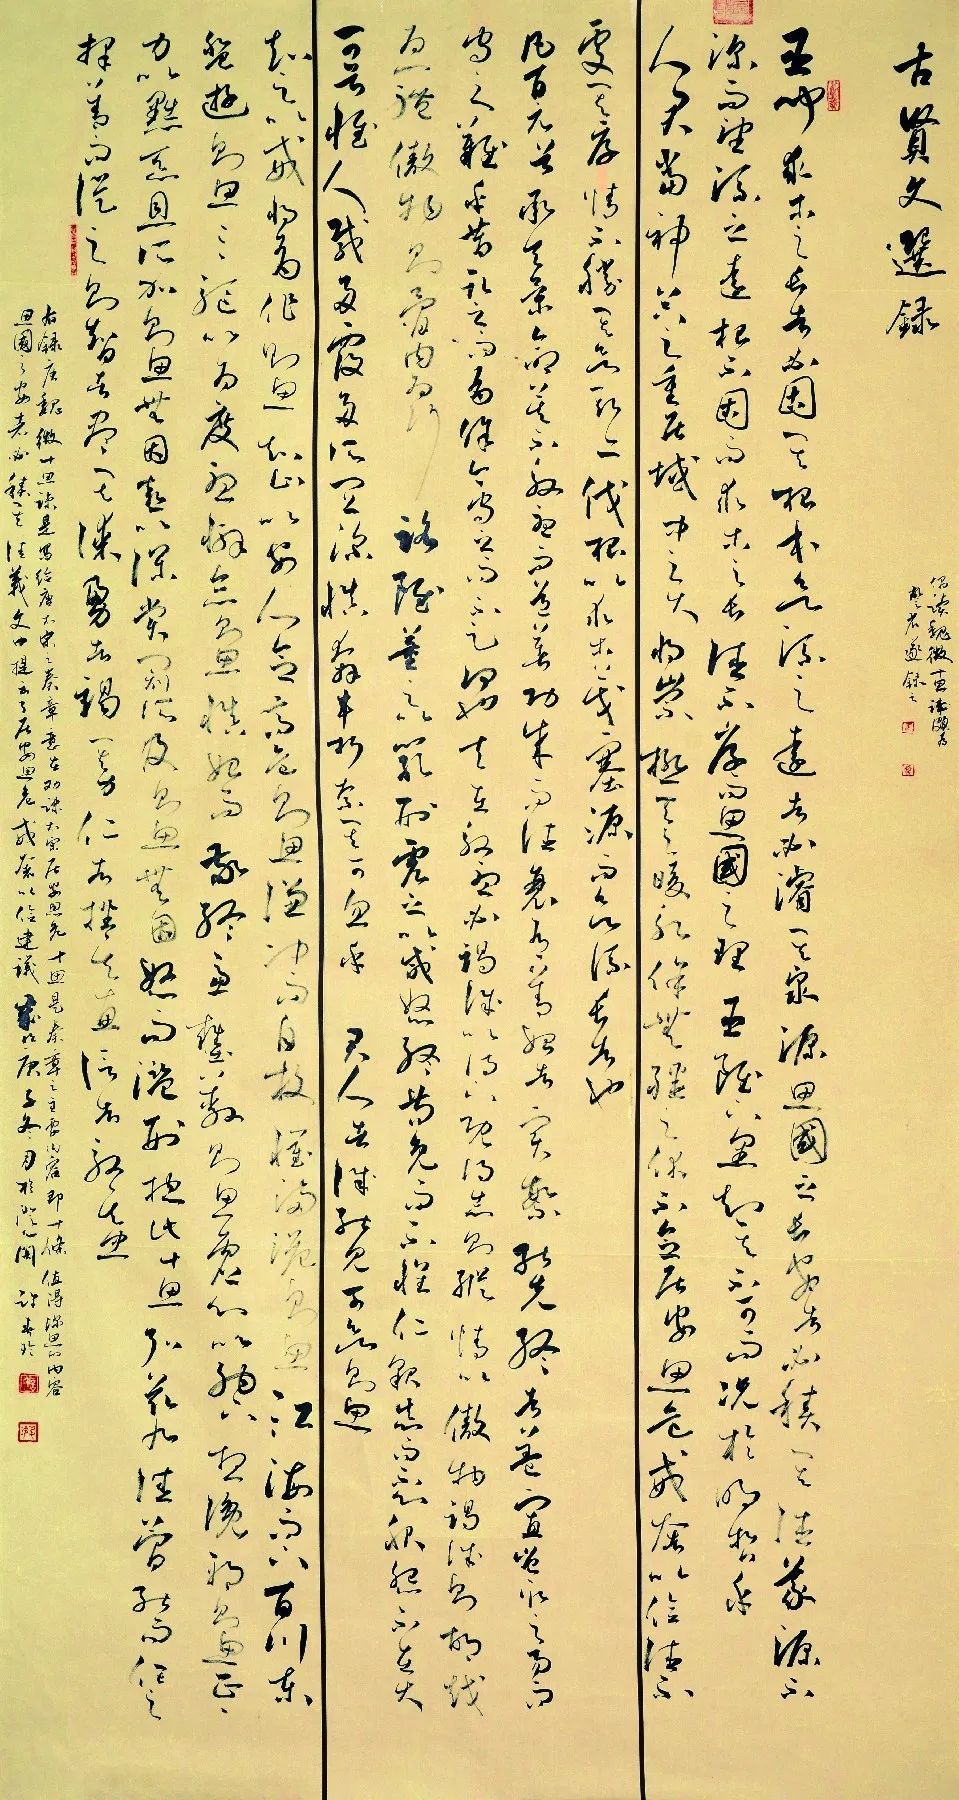 古贤文選録
偶读魏徵十思疏
臣闻求木之长者必固其根本欲流之遠者必濬其泉源思國之安者必積其德義源不
深而望流之遠根不固而求木之长德不厚而思國之理臣雖下愚知其不可而况於明哲乎
人君當神器之重居域中之大将崇極天之峻永保無疆之休不念居安思危戒奢以儉德不
處其厚情不勝其欲斯亦伐根以求木茂塞源而欲流长者也
凡百元首承天景命莫不殷憂而道著功成而德衰有善始者实繁能克終者蓋寡豈取之易而
守之難乎昔取之而有餘今守之而不足何也夫在殷憂必竭诚以待下既得志則縱情以傲物竭诚則胡越
为一體傲物則骨肉为行路雖董之以嚴刑震之以威怒終苟免而不懷仁貌恭而不心服怨不在大
可畏惟人載舟覆舟所宜深慎奔車朽索其可忽乎 君人者诚能見可欲則思
知足以戒将有作則思知止以安人念高危則思謙冲而自牧懼滿溢則思江海而下百川樂
盤遊則思三驅以为度憂懈怠則思慎始而敬終慮壅蔽則思虚心以納下想讒邪則思正
身以黜恶恩所加則思無因喜以谬賞罚所及則思無因怒而濫刑揔此十思弘兹九德簡能而任之
择善而從之則智者盡其謀勇者竭其力仁者播其惠信者効其忠
右録唐魏徵十思疏是写给唐太宗之奏章意在劝谏太宗居安思危十思是奏章之主要内容即十條值得深思的内容
思國之安者必積其德義文中提出了居安思危戒奢以俭建議 歲次庚子冬月於